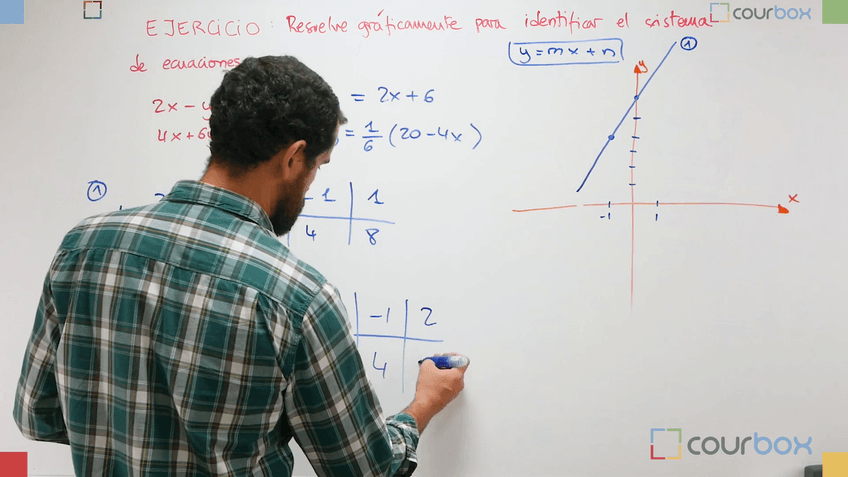 EJERCICIO: Resuelve gráficamente para identificar el sistema
de ecuaciones
courbox
y = mx + n
2x - y
= 2x + 6
4x + 6
= 1/6 (20 - 4x)
1
- 1 1
4 8
-1 2
4
1
y
x
-1 1
courbox